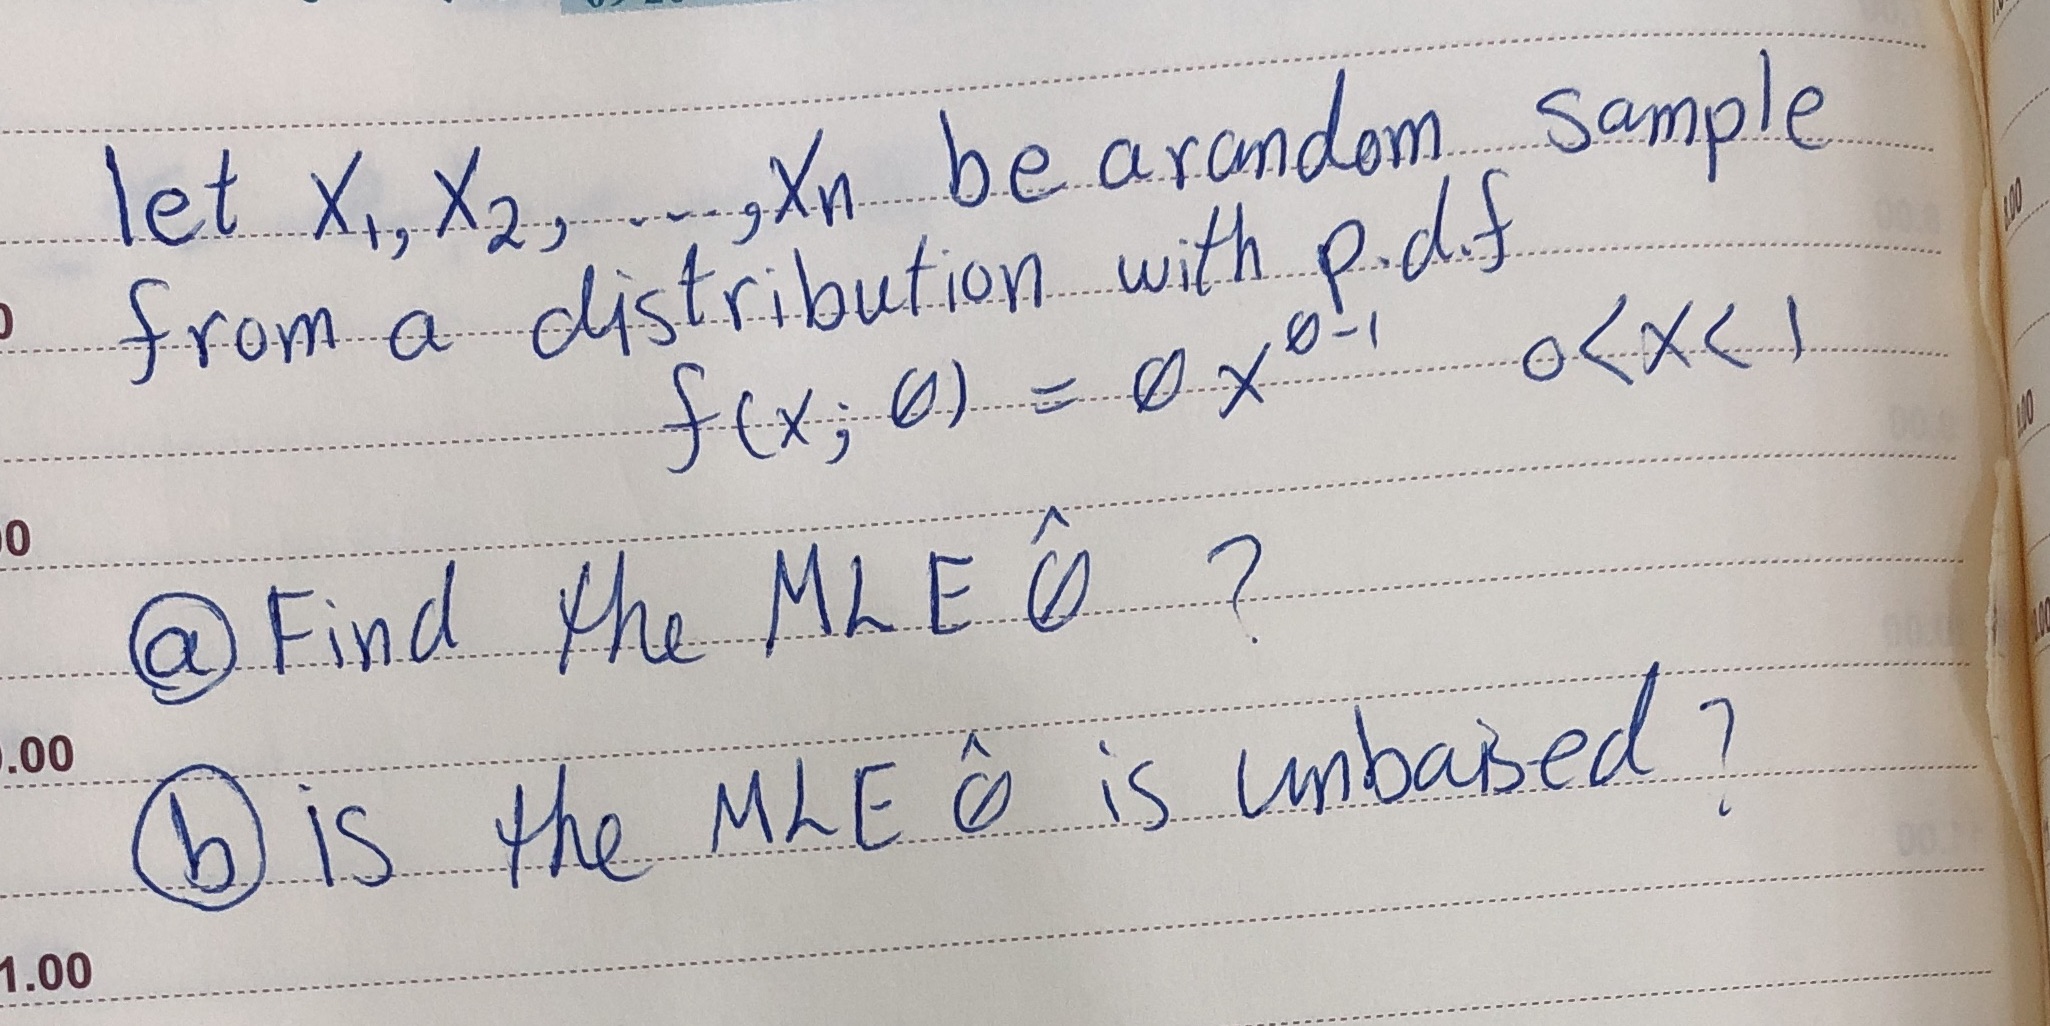 let X₁, X₂, ....., Xn be a random sample
from a distribution with p.d.f
f(x; θ) = θ x^θ-1 0<x<1
ⓐ Find the MLE θ̂ ?
ⓑ is the MLE θ̂ is unbaised ?
.00
1.00